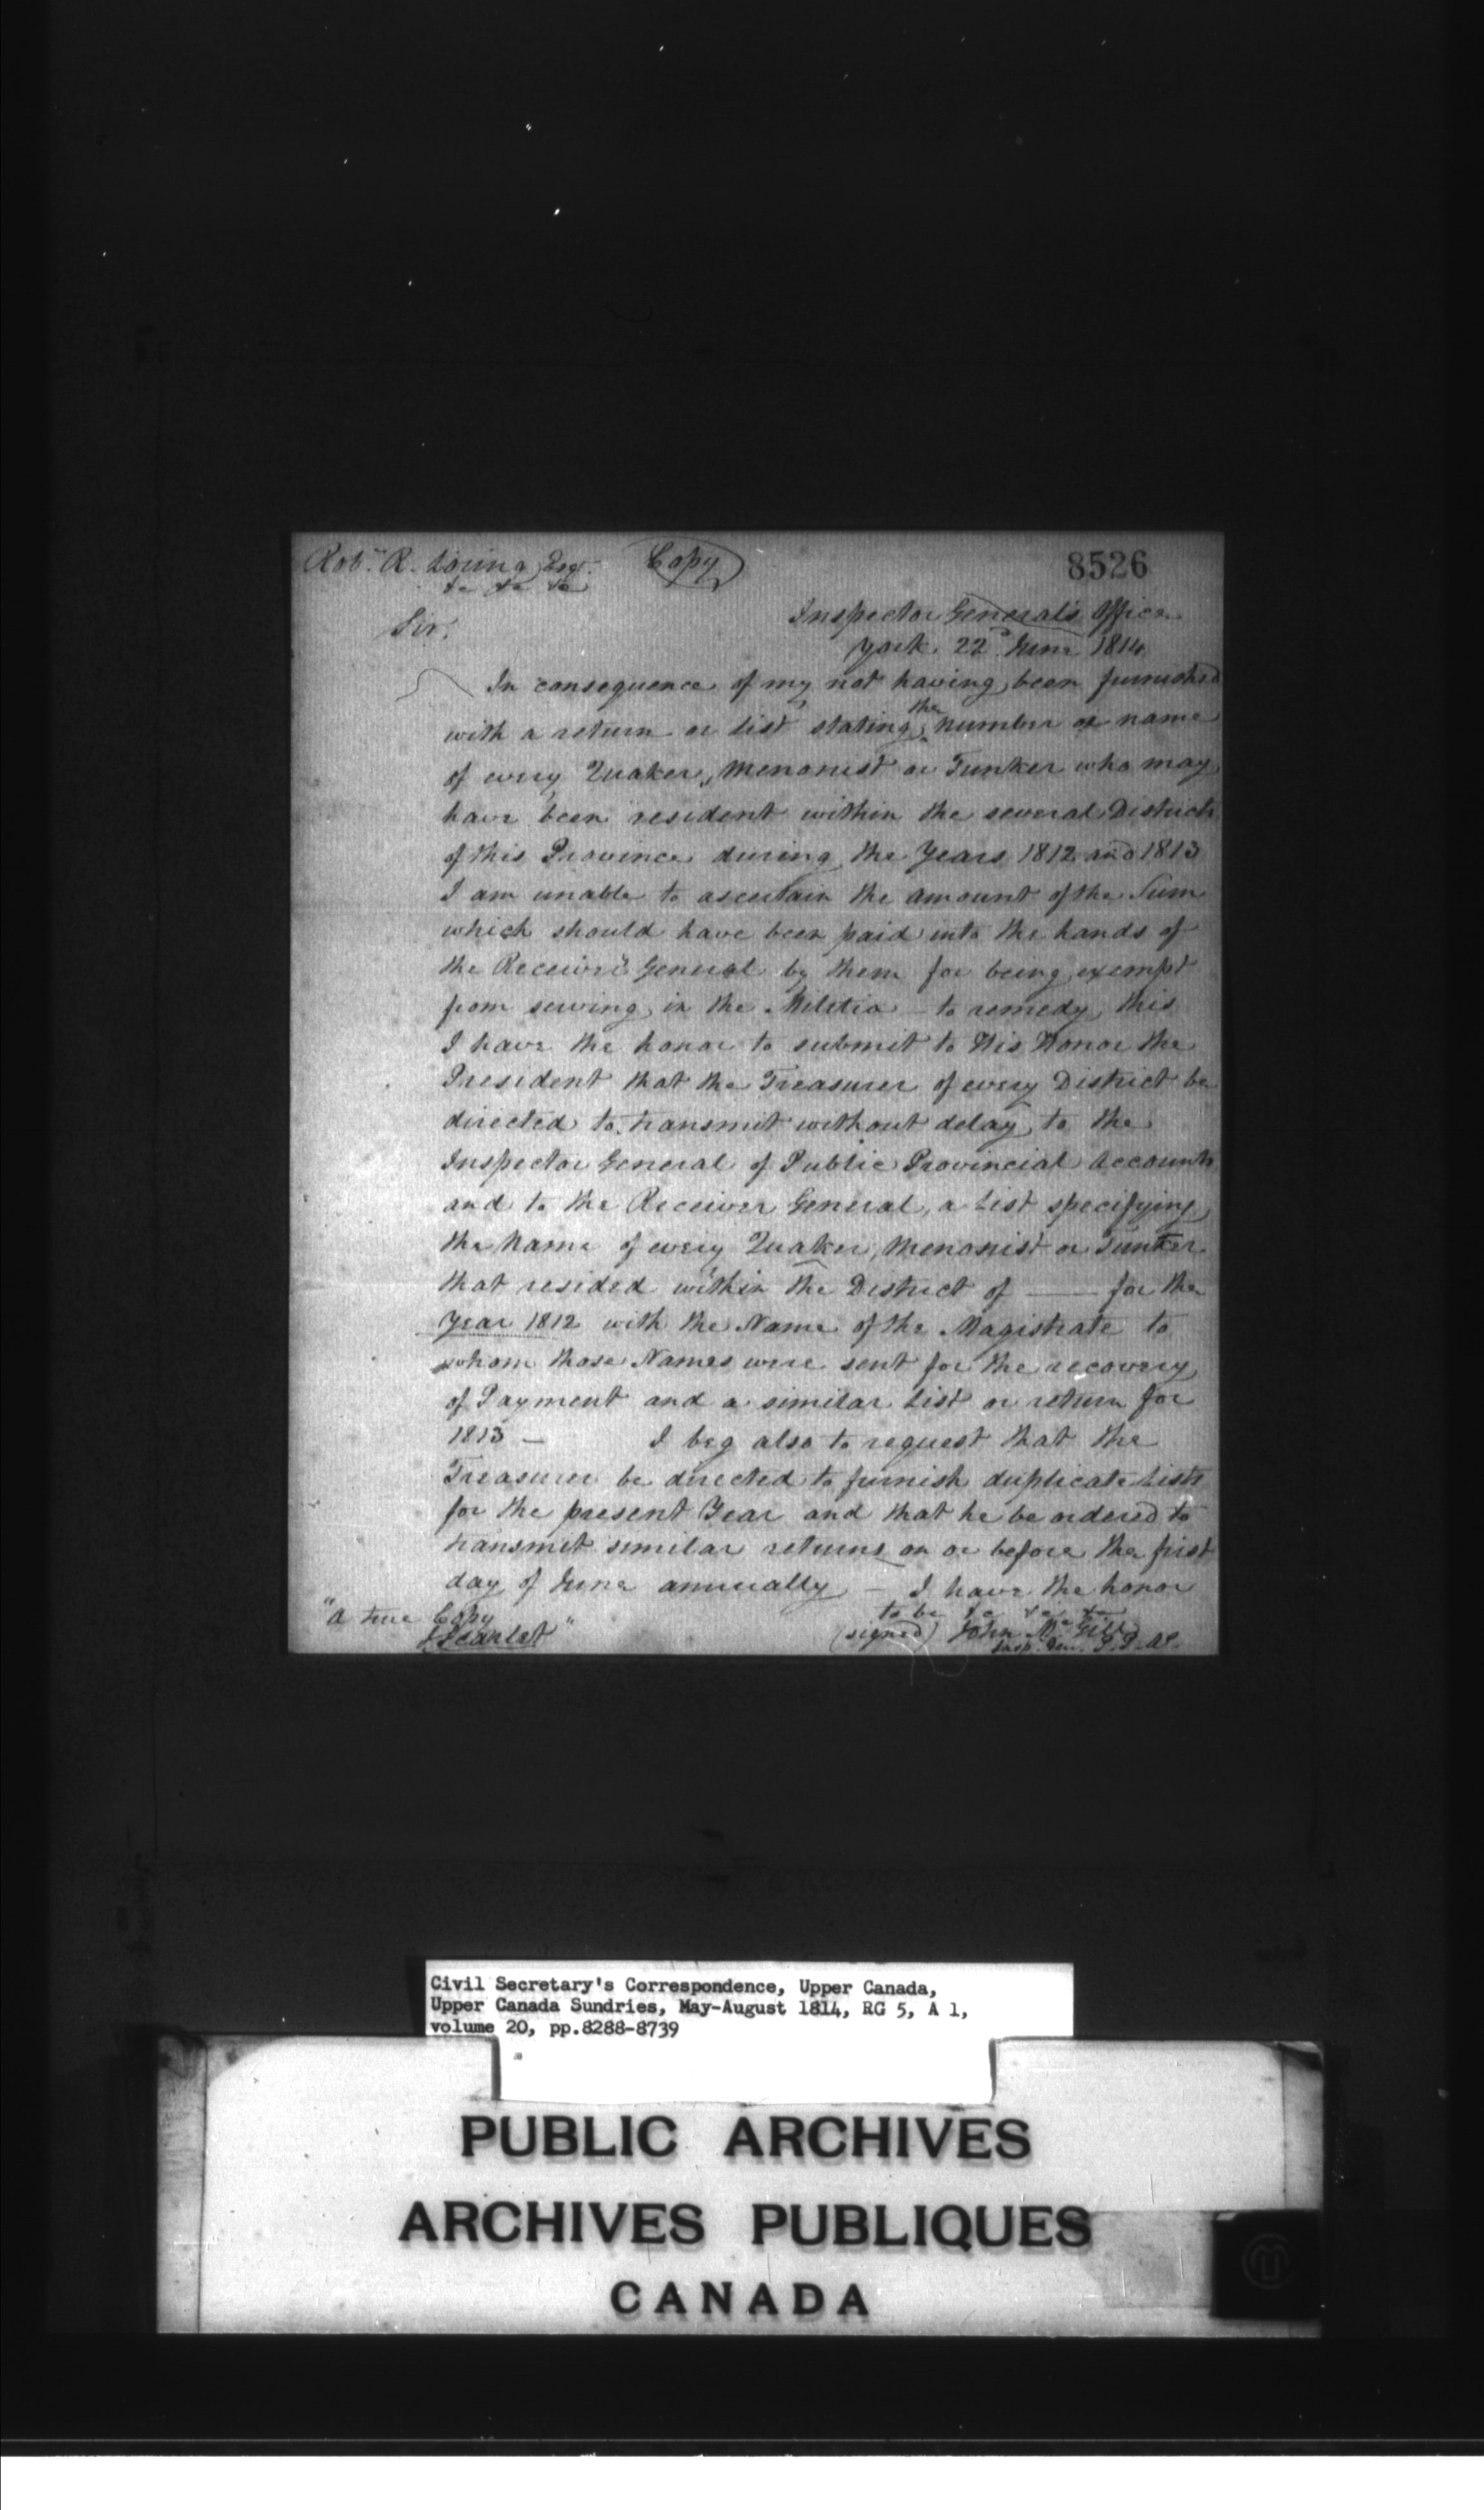 Robt. R. Loring Esqr. Copy 8526
&c &c &c
Inspector General's Office
Sir,
York 22d June 1814
In consequence of my not having been furnished
with a return or list stating the number or name
of every Quaker, Menonist or Tunker who may
have been resident within the several Districts
of this Province during the Years 1812 and 1813
I am unable to ascertain the amount of the Sum
which should have been paid into the hands of
the Receiver General by them for being exempt
from serving in the Militia – to remedy this
I have the honor to submit to His Honor the
President that the Treasurer of every District be
directed to transmit without delay to the
Inspector General of Public Provincial Accounts
and to the Receiver General, a List specifying
the Name of every Quaker, Menonist or Tunker
that resided within the District of —— for the
Year 1812 with the Name of the Magistrate to
whom those Names were sent for the recovery
of Payment and a similar List or return for
1813 — I beg also to request that the
Treasurer be directed to furnish duplicate Lists
for the present Year and that he be ordered to
transmit similar returns on or before the first
day of June annually – I have the honor
to be &c &c &c
"a true Copy (signed) John McGill
Scarlet" Insp. Gen. P. P. Ac.
Civil Secretary's Correspondence, Upper Canada,
Upper Canada Sundries, May-August 1814, RG 5, A 1,
volume 20, pp.8288-8739
PUBLIC ARCHIVES
ARCHIVES PUBLIQUES
CANADA